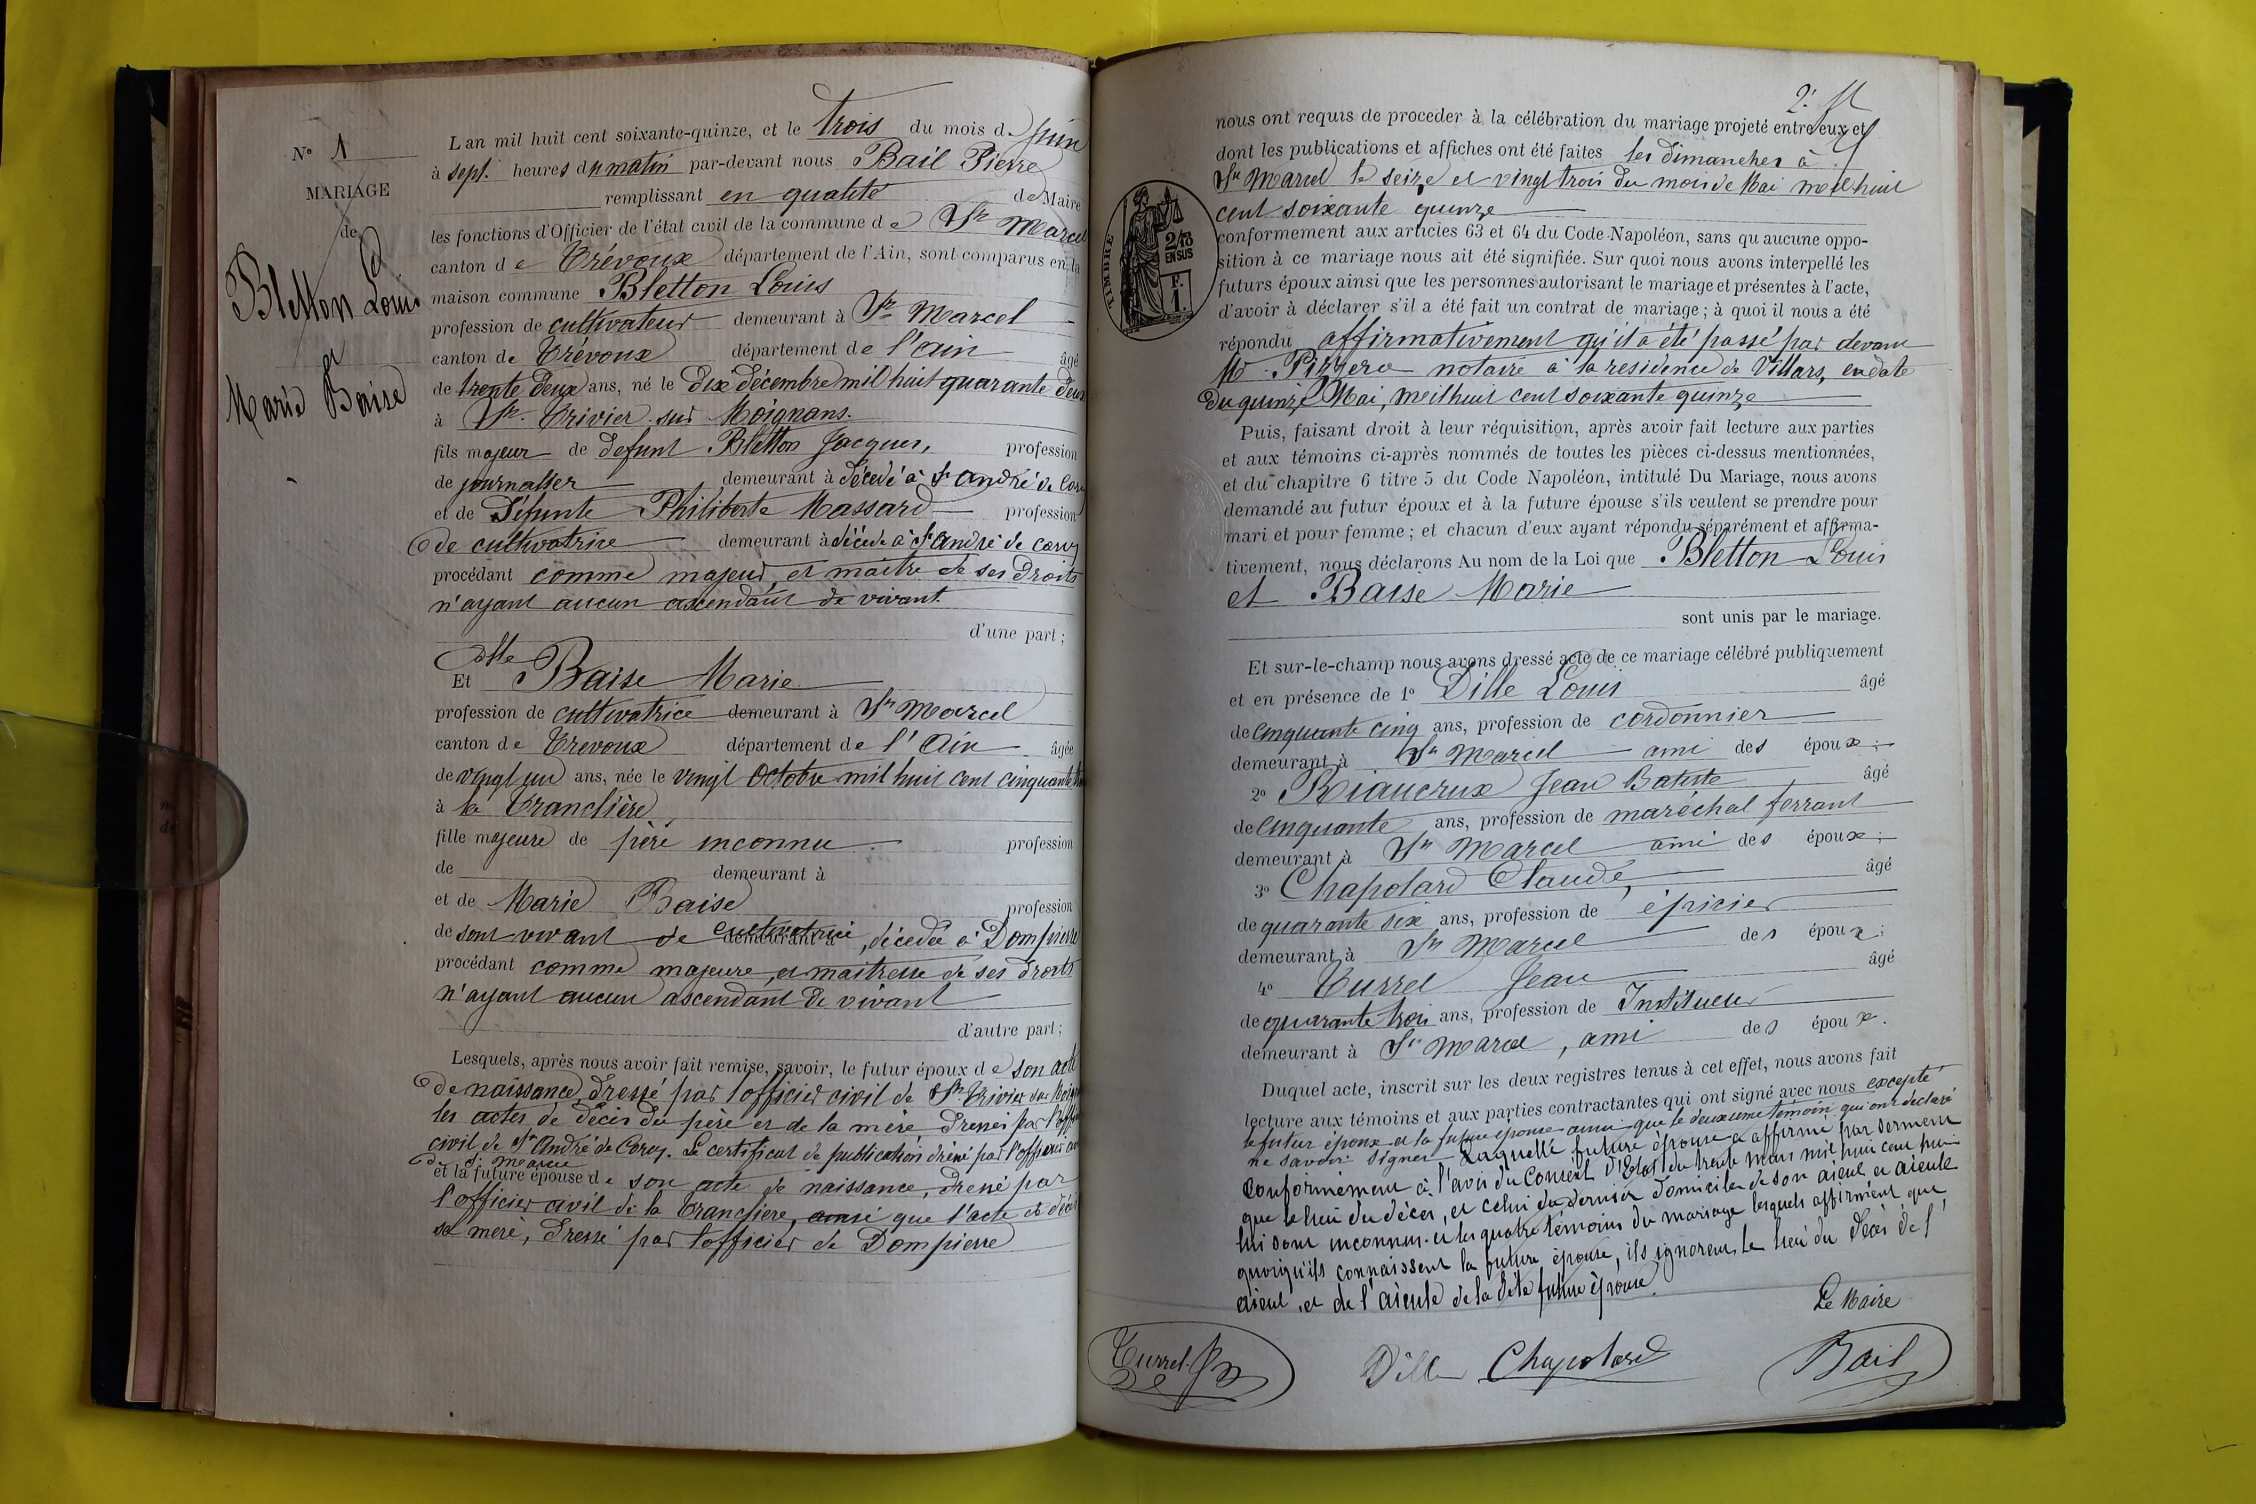 N° 1
MARIAGE
de
Bletton Louis
et
Marie Baise
L'an mil huit cent soixante-quinze, et le trois du mois de Juin
à sept heures du matin par-devant nous Bail Pierre
remplissant en qualité de Maire
les fonctions d'Officier de l'état civil de la commune de St Marcel
canton de Trévoux département de l'Ain, sont comparus en la
maison commune Bletton Louis
profession de cultivateur demeurant à St Marcel
canton de Trévoux département de l'Ain âgé
de trente deux ans, né le dix décembre mil huit quarante deux
à St. Trivier sur Moignans.
fils majeur de defunt Bletton Jacques, profession
de journalier demeurant à décédé à St André de Corcy
et de Défunte Philiberte Massard profession
de cultivatrice demeurant à décédé à St André de corcy
procédant comme majeur, et maitre de ses droits
n'ayant aucun ascendant de vivant.
d'une part;
Et Dlle Baise Marie
profession de cultivatrice demeurant à St Marcel
canton de Trevoux département de l'Ain âgée
de vingt un ans, née le vingt Octobre mil huit cent cinquante trois
à la Tranclière
fille majeure de père inconnu profession
de demeurant à
et de Marie Baise profession
de sont vivant de cultivatrice demeurant à, décédée à Dompierre
procédant comme majeure, et maitresse de ses droits
n'ayant aucun ascendant de vivant
d'autre part;
Lesquels, après nous avoir fait remise, savoir, le futur époux de son acte
de naissance, dressé par l'officier civil de St Trivier sur Moignans
les actes de décès du père et de la mère dressés par l'officier
civil de St André de Corcy. Le certificat de publication dréssé par l'officier civil
de St Marcel
et la future épouse de son acte de naissance, dressé par
l'officier civil de la Tranclière, ainsi que l'acte de décès
sa mère, dressé par l'officier de Dompierre
2.
nous ont requis de procéder à la célébration du mariage projeté entre eux et
dont les publications et affiches ont été faites les dimanches à
St Marcel le seize et vingt trois du mois de Mai mil huit
cent soixante quinze
conformément aux articles 63 et 64 du Code Napoléon, sans qu'aucune oppo-
sition à ce mariage nous ait été signifiée. Sur quoi nous avons interpellé les
futurs époux ainsi que les personnes autorisant le mariage et présentes à l'acte,
d'avoir à déclarer s'il a été fait un contrat de mariage; à quoi il nous a été
répondu affirmativement qu'il a été passé par devant
Me notaire à la residence de Villars, en date
du quinze Mai, meil huit cent soixante quinze
TIMBRE
2/10
EN SUS
F.
1.
Puis, faisant droit à leur réquisition, après avoir fait lecture aux parties
et aux témoins ci-après nommés de toutes les pièces ci-dessus mentionnées,
et du chapitre 6 titre 5 du Code Napoléon, intitulé Du Mariage, nous avons
demandé au futur époux et à la future épouse s'ils veulent se prendre pour
mari et pour femme; et chacun d'eux ayant répondu séparément et affirma-
tivement, nous déclarons Au nom de la Loi que Bletton Louis
et Baise Marie
sont unis par le mariage.
Et sur-le-champ nous avons dressé acte de ce mariage célébré publiquement
et en présence de 1° Dille Louis âgé
de cinquante cinq ans, profession de cordonnier
demeurant à St Marcel ami des époux;
2° Riaucrux Jean Batiste âgé
de cinquante ans, profession de maréchal ferrant
demeurant à St Marcel ami des époux;
3° Chapolard Claude, âgé
de quarante six ans, profession de épicier
demeurant à St Marcel des époux;
4° Turrel Jean âgé
de quarante trois ans, profession de Instituteur
demeurant à St Marcel, ami des époux.
Duquel acte, inscrit sur les deux registres tenus à cet effet, nous avons fait
lecture aux témoins et aux parties contractantes qui ont signé avec nous excepté
le futur époux et la future épouse ainsi que le deuxieme témoin qui ont déclaré
ne savoir signer Laquelle future épouse a affirmé par serment
Conformément à l'avis du Conseil d'Etat du trente mars mil huit cent huit
que le lieu du décès, et celui du dernier domicile de son aieul et aieule
lui sont inconnus. et les quatre témoins du mariage lesquels affirment que
quoiqu'ils connaissent la future épouse, ils ignorent le lieu du décès de l'
aieul, et de l'aieule de la dite future épouse.
Le Maire
Turrel Dille Chapolard Bail